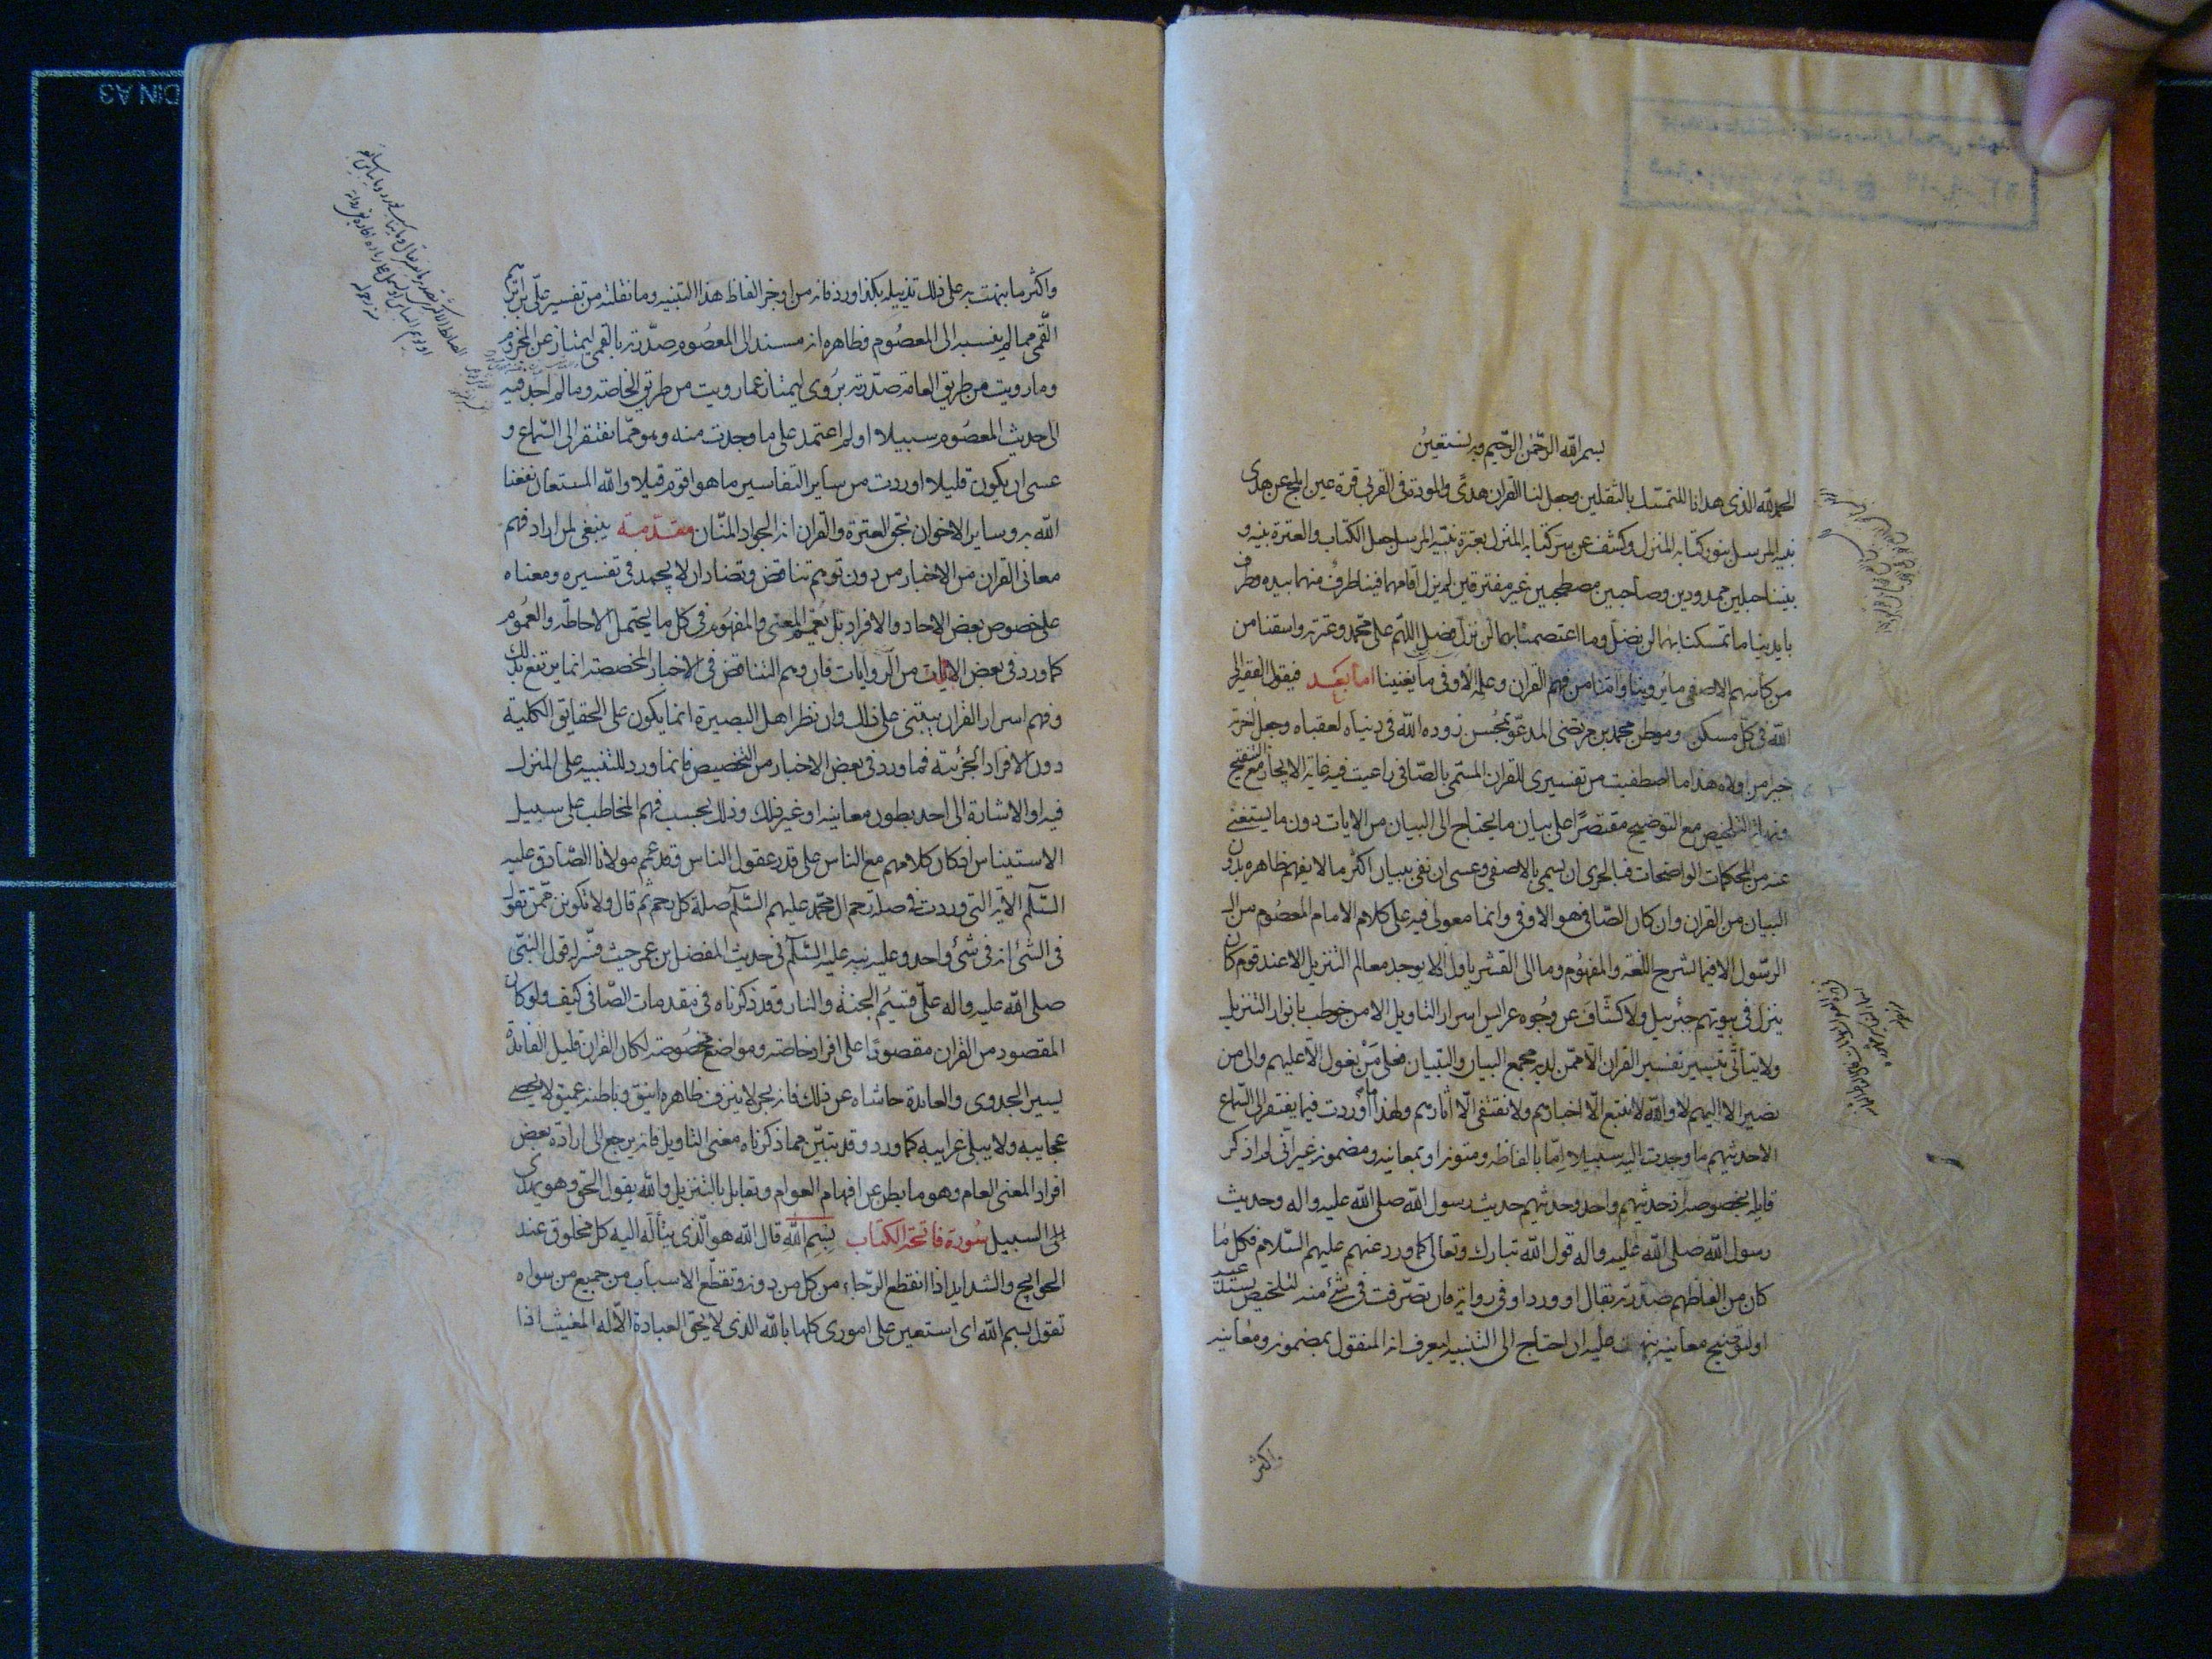 بسم الله الرحمن الرحيم وبه نستعين
الحمد لله الذى هدانا للتمسك بالثقلين وجعل لنا القران هدًى والمودة فى القربى قرة عين ابلج عن هدى
نبيه المرسل بنور كتابه المنزل وكشف عن سرّ كتابه المنزل بعترة نبيّه المرسل جعل الكتاب والعترة بينه و
بيننا حبلين ممدودين وصاحبين مصطحبين غير مفترقين لم يزل اقامهما فينا طرفٌ منهما بيده وطرف
بايدينا ما تمسكنا بهما لن نضل وما اعتصمنا بهما لن نزل فصل اللهم على محمد وعترته واسقنا من
من كاسهم الاصفى ما يروينا واتنا من فهم القران وعلمه الاوفى ما يغنينا اما بعد فيقول الفقير الى
الله فى كل مسكن وموطن محمد بن مرتضى المدعو بمحسن زوده الله فى دنياه لعقباه وجعل اخرته
خيرا من اولاه هذا ما اصطفيت من تفسيرى للقران المسمّى بالصّافى راعيت فيه غاية الايجاز مع التنقيح
ونهاية التلخيص مع التوضيح مقتصرًا على بيان ما يحتاج الى البيان من الايات دون ما يستغنى
عنه من المحكمات الواضحات فبالحرى ان يسمى بالاصفى وعسى ان نفى ببيان اكثر ما لا يفهم ظاهره بدون
البيان من القران وان كان الصّافى هو الاوفى وانما معولى فيه على كلام الامام المعصوم من ال
الرسول الا فيما لشرح اللغة والمفهوم وما الى القشر ياول اذ لا يوجد معالم التنزيل الا عند قوم كان
ينزل فى بيوتهم جبرئيل ولا كشّاف عن وجوه عرايس اسرار التاويل الا من خوطب بانوار التنزيل
ولا يتأتى تيسير تفسير القران الا ممّن لديه مجمع البيان والتبيان فعلى مَنْ نعول الّا عليهم والى من
نصير الا اليهم لا والله لا نتبع الّا اخبارهم ولا نقتفى الّا اثارهم ولهذا ما اوردت فيما يفتقر الى السماع
الا حديثهم ما وجدت اليه سبيلا امّا بالفاظه ومتونه او بمعانيه ومضمونه غير انّى لم اذكر
قايله بخصوصه اذ حديثهم واحد وحديثهم حديث رسول الله صلى الله عليه واله وحديث
رسول الله صلى الله عليه واله قول الله تبارك وتعالى كما ورد عنهم عليهم السلام فكل ما
كان من الفاظهم صدرته بقال او ورد او فى رواية فان تصرّفت فى شئ منه لتلخيص يستدعيه
او لتوضيح معانيه نبهت عليه ان احتاج الى التنبيه ليعرف انه المنقول بمضمونه ومعانيه
واكثر
واكثر ما نبهت به على ذلك تذييله بكذا ورد فانه من اوجز الفاظ هذا التنبيه وما نقلته من تفسير على بن ابرهيم
القمى مما لم ينسبه الى المعصوم فظاهره انه مسند الى المعصوم صدّرته بالقمى ليمتاز عن المجزوم
وما رويت من طريق العامة صدّرته برُوى ليمتاز عما رويت من طريق الخاصة وما لم اجد فيه
الى حديث المعصوم سبيلا او لم اعتمد على ما وجدت منه وهو مما يفتقر الى السماع و
عسى ان يكون قليلا اوردت من ساير التفاسير ما هو اقوم قيلا والله المستعان نفعنا
الله به وساير الاخوان بحق العترة والقران انه الجواد المنان مقدمة ينبغى لمن اراد فهم
معانى القران من الاخبار من دون توهم تناقض وتضاد ان لا يجمد فى تفسيره ومعناه
على خصوص بعض الاحاد والافراد بل يعمّم المعنى والمفهوم فى كل ما يحتمل الاحاطة والعموم
كما ورد فى بعض الايات من الروايات فان وهم التناقض فى الاخبار المخصصه انما يرتفع بذلك
وفهم اسرار القران يبتنى على ذلك وان نظر اهل البصيرة انما يكون على الحقايق الكلية
دون الافراد الجزئية فما ورد فى بعض الاخبار من التخصيص فانما ورد للتنبيه على المنزل
فيه او الاشارة الى احد بطون معانيه او غير ذلك وذلك بحسب فهم المخاطب على سبيل
الاستيناس اذ كان كلامهم مع الناس على قدر عقول الناس وقد عمّم مولانا الصّادق عليه
السّلم الاية التى وردت فى صلة رحم ال محمد عليهم السّلم صلة كل رحم ثم قال ولا تكونن ممّن تقول
فى الشئ انه فى شئ واحد وعليه نبه عليه السّلم فى حديث المفضل بن عمر حيث فسّر له قول النبى
صلى الله عليه واله علىّ قسيم الجنة والنار وقد ذكرناه فى مقدمات الصّافى كيف ولو كان
المقصود من القران مقصورًا على افراد خاصة ومواضع مخصوصة لكان القران قليل الفائدة
يسير الجدوى والعايدة حاشاه عن ذلك فانه بحر لا ينزف ظاهره انيق وباطنه عميق لا يحصى
عجايبه ولا يبلى غرايبه كما ورد وقد تبيّن مما ذكرناه معنى التاويل فانه يرجع الى ارادة بعض
افراد المعنى العام وهو ما بطن عن افهام العوام وتقابل بالتنزيل والله يقول الحق وهو يهدى
الى السبيل سورة فاتحة الكتاب بسم الله قال الله هو الذى يتألّه اليه كل مخلوق عند
الحوايج والشدايد اذا انقطع الرجاء من كل من دونه وتقطّع الاسباب من جميع من سواه
تقول بسم الله اى استعين على امورى كلها بالله الذى لا يحق العبادة الا له المغيث اذا